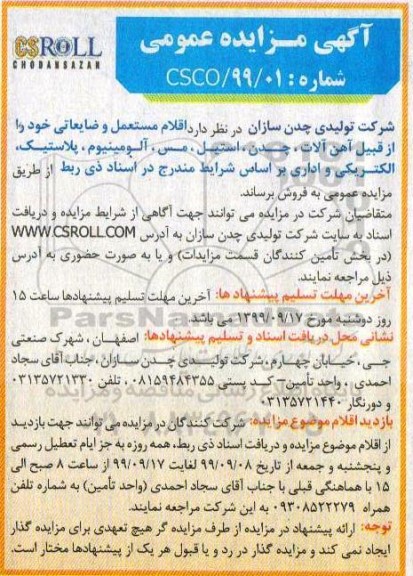 آگهی مـزایده عمومی
CSROLL
CHODANSAZAN
شماره : CSCO/۹۹/۰۱
شرکت تولیدی چدن سازان در نظر دارد اقلام مستعمل و ضایعاتی خود را
از قبیل آهن آلات ، چـدن ، استیـل ، مـس ، آلـومینیوم ، پلاستیـک،
الکتـریکی و اداری بر اساس شرایط مندرج در اسناد ذی ربط از طریق
مزایده عمومی به فروش برساند.
متقاضیان شرکت در مزایده می توانند جهت آگاهی از شرایط مزایده و دریافت
اسناد به سایت شرکت تولیدی چدن سازان به آدرس WWW.CSROLL.COM
(در بخش تأمین کنندگان قسمت مزایدات) و یا به صورت حضوری به آدرس
ذیل مراجعه نمایند.
آخرین مهلت تسلیم پیشنهاد ها: آخرین مهلت تسلیم پیشنهادها ساعت ۱۵
روز دوشنبه مورخ ۱۳۹۹/۰۹/۱۷ می باشد.
نشانی محل دریافت اسناد و تسلیم پیشنهادها: اصفهان ، شهرک صنعتی
جی، خیابان چهارم، شرکت تولیدی چدن سـازان ، جناب آقای سجاد
احمدی ، واحد تأمین– کـد پستی ۸۱۵۹۴۸۴۳۵۵ ، تلفن ۰۳۱۳۵۷۲۱۳۳۰
و دورنگار ۰۳۱۳۵۷۲۱۴۴۰
بازدید اقلام موضوع مزایده: شرکت کنندگان در مزایده می توانند جهت بازدیـد
از اقلام موضوع مزایده و دریافت اسناد ذی ربط، همه روزه به جز ایام تعطیل رسمی
و پنجشنبه و جمعه از تاریخ ۹۹/۰۹/۰۸ لغایت ۹۹/۰۹/۱۷ از ساعت ۸ صبح الی
۱۵ با هماهنگی قبلی با جناب آقای سجاد احمدی (واحد تأمین) به شماره تلفن
همراه ۰۹۳۰۸۵۲۲۲۷۹ به این شرکت مراجعه نمایند.
توجه: ارائه پیشنهاد در مزایده از طرف مزایده گر هیچ تعهدی برای مزایده گذار
ایجاد نمی کند و مزایده گذار در رد و یا قبول هر یک از پیشنهادها مختار است.